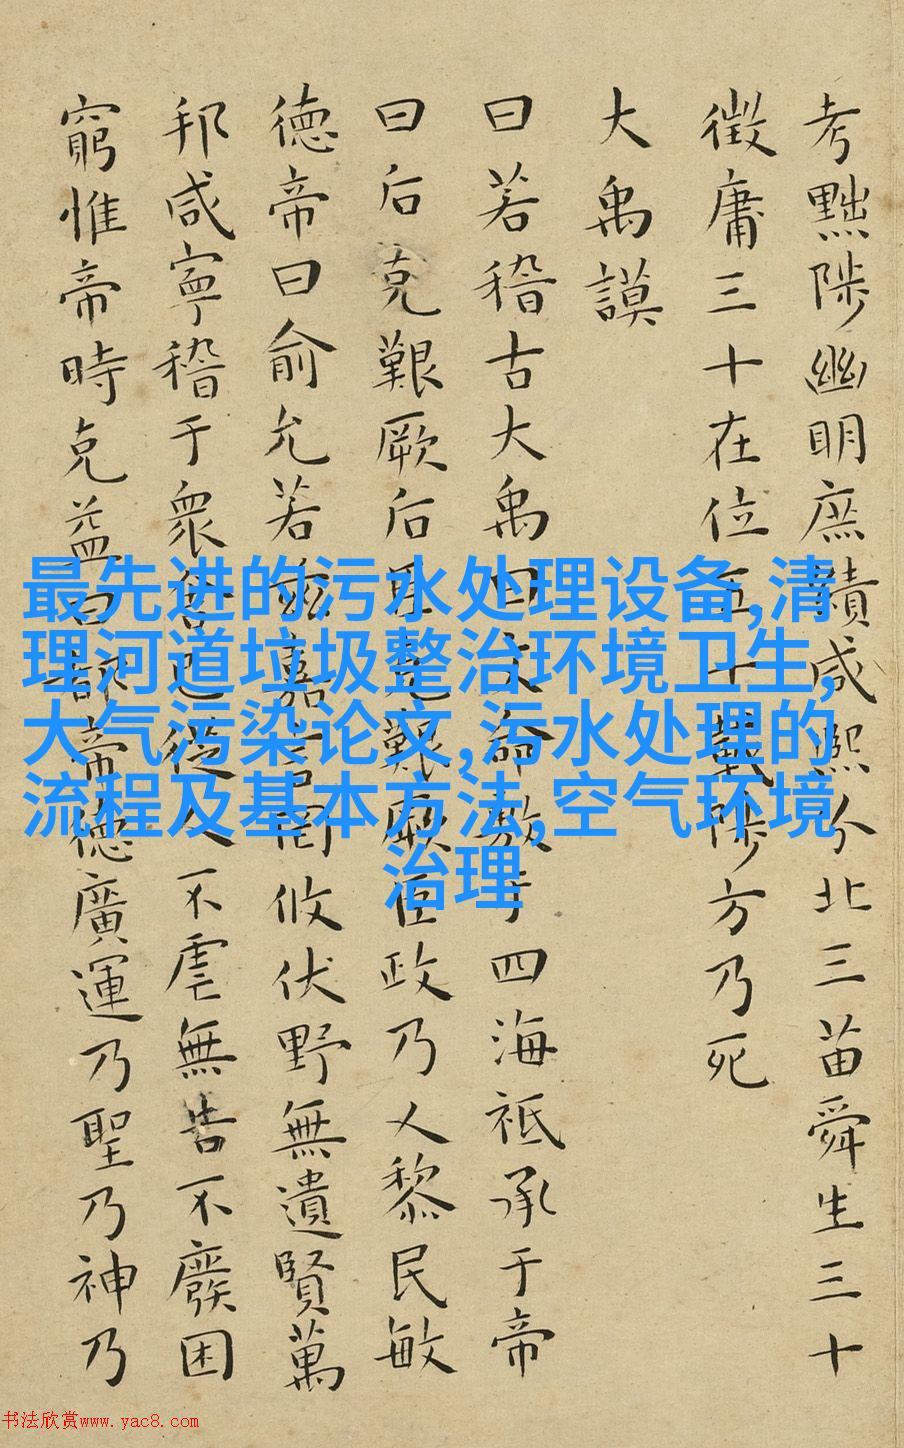 考黜陟幽明庶績咸熙分北三苗舜生三十
徵庸三十在位五十載陟方乃死
大禹謨
曰若稽古大禹曰文命敷于四海祗承于帝
曰后克艱厥后臣克艱厥臣政乃乂黎民敏
德帝曰俞允若茲嘉言罔攸伏野無遺賢萬
邦咸寧稽于衆舍己從人不虐無告不廢困
窮惟帝時克益曰都帝德廣運乃聖乃神乃
最先进的污水处理设备,清
理河道垃圾整治环境卫生,
大气污染论文,污水处理的
流程及基本方法,空气环境
治理
书法欣赏www.yac8.com